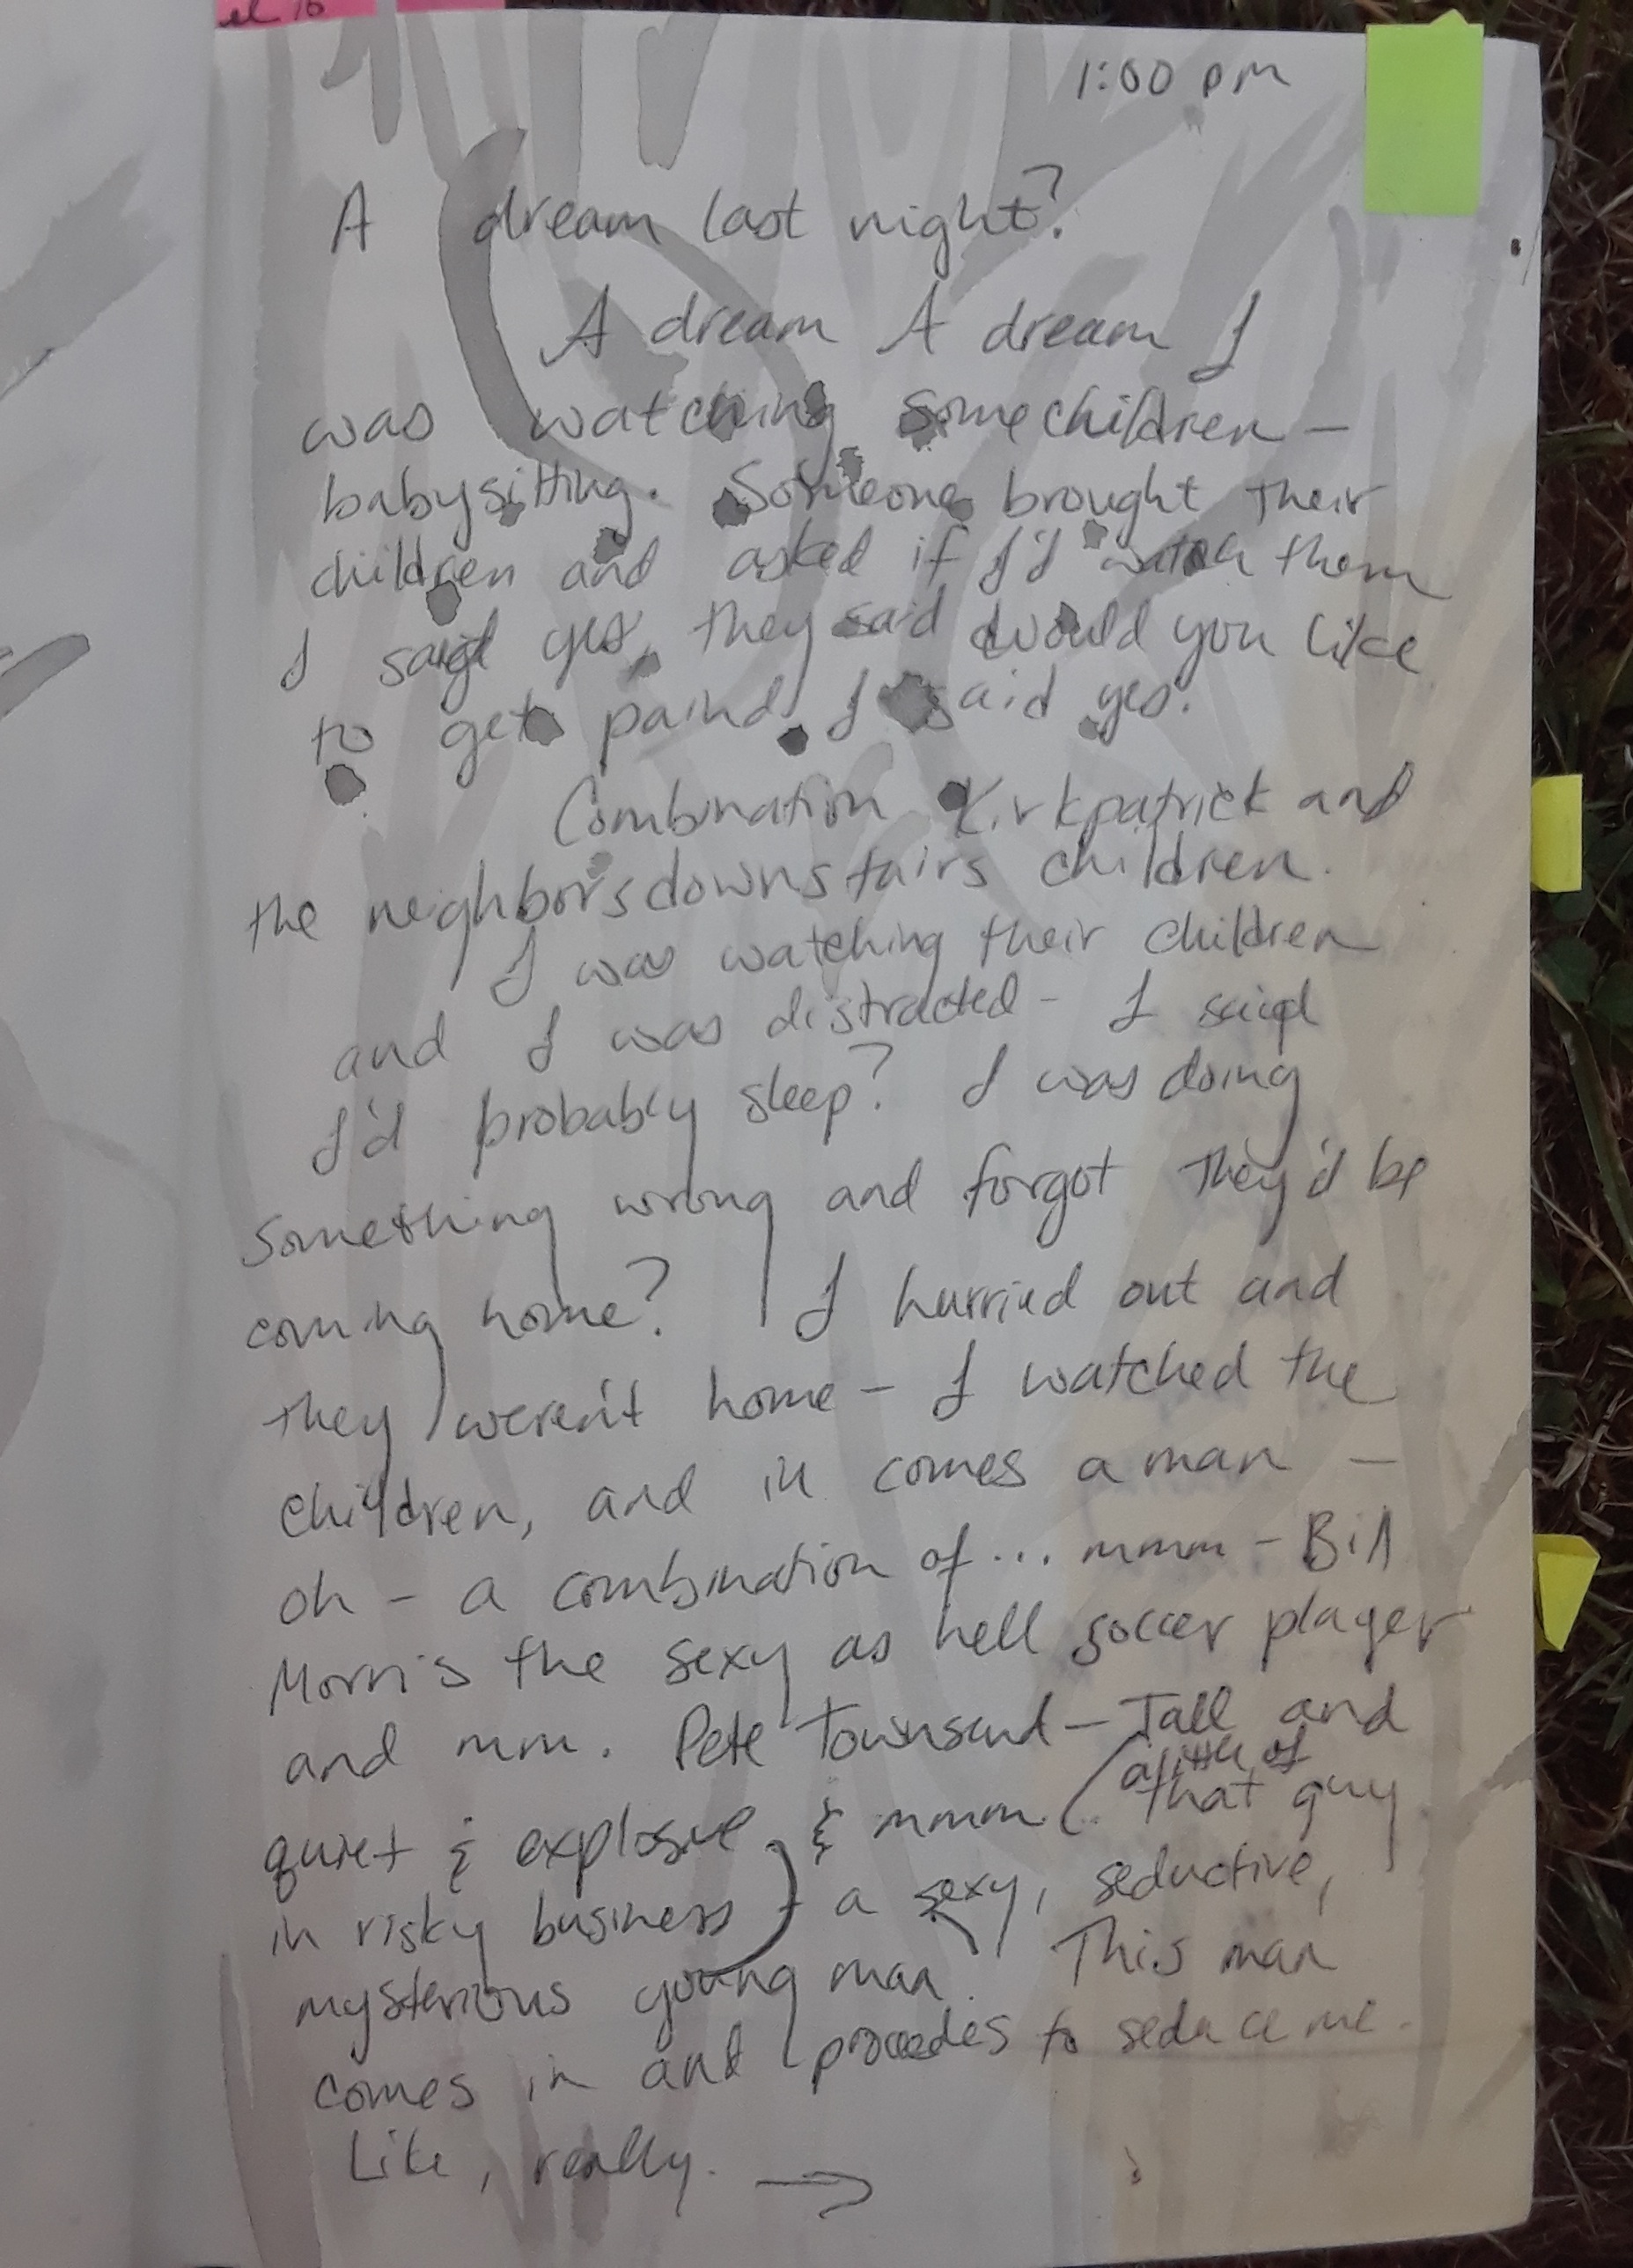 1:00 pm
A dream last night?
A dream A dream I
was watching some children -
babysitting. Someone brought their
children and asked if I'd watch them
I said yes, they said would you like
to get paind I said yes.
Combination Kirkpatrick and
the neighbors downstairs children.
I was watching their children
and I was distracted - I said
I'd probably sleep? I was doing
something wrong and forgot they'd be
coming home? I hurried out and
they weren't home - I watched the
children, and in comes a man -
oh - a combination of ... mmm - Bill
Morris the sexy as hell soccer player
and mm. Pete Townsend - Tall and
quiet & explosive & mmm (a little of that guy
in risky business) - a sexy, seductive,
mysterious young man. This man
comes in and procedes to seduce me.
Like, really. →